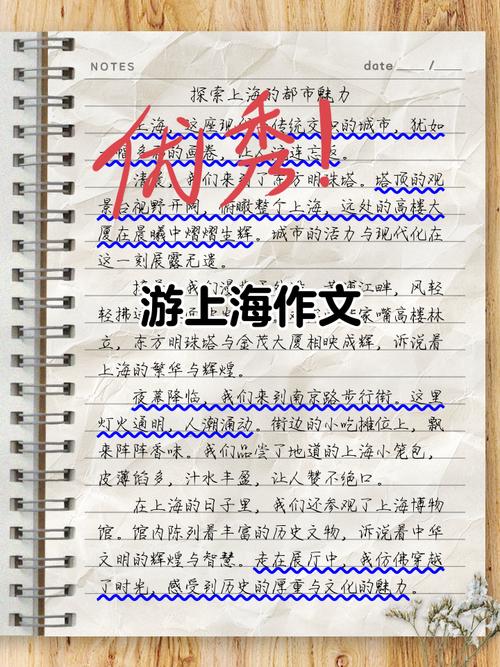 NOTES
date ___ / ___
探索上海的都市魅力
上海，这座现 传统交 的城市，犹如
的画卷，让人流连忘返。
优秀！
清晨，我们来到了东方明珠塔。塔顶的观
景台视野开阔，俯瞰整个上海，远处的高楼大
厦在晨曦中熠熠生辉。城市的活力与现代化在
这一刻展露无遗。
我们漫 黄浦江畔，风轻
轻拂过 家嘴高楼林
游上海作文
立，东方明珠塔与金茂大厦相映成辉，诉说着
上海的繁华与辉煌。
夜幕降临，我们来到南京路步行街。这里
灯火通明，人潮涌动。街边的小吃摊位上，飘
来阵阵香味。我们品尝了地道的上海小笼包，
皮薄馅多，汁水丰盈，让人赞不绝口。
在上海的日子里，我们还参观了上海博物
馆。馆内陈列着丰富的历史文物，诉说着中华
文明的辉煌与智慧。走在展厅中，我仿佛穿越
了时光，感受到历史的厚重与文化的魅力。